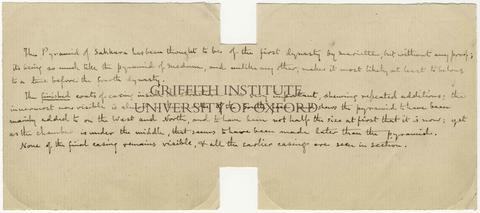 The Pyramid of Sakkara has been thought to be of the first dynasty by Mariette, but without any proof;
its being so much like the pyramid of Medum, and unlike any other, makes it most likely at least to belong
to a time before the fourth dynasty.
The finished coats of casing in shewing repeated additions; the
innermost now visible is shews the pyramid to have been
mainly added to on the West and North, and to have been not half the size at first that it is now; yet
as the chamber is under the middle, that seems to have been made later than the pyramid.
None of the final casing remains visible, & all the earlier casings are seen in section.
GRIFFITH INSTITUTE
UNIVERSITY OF OXFORD